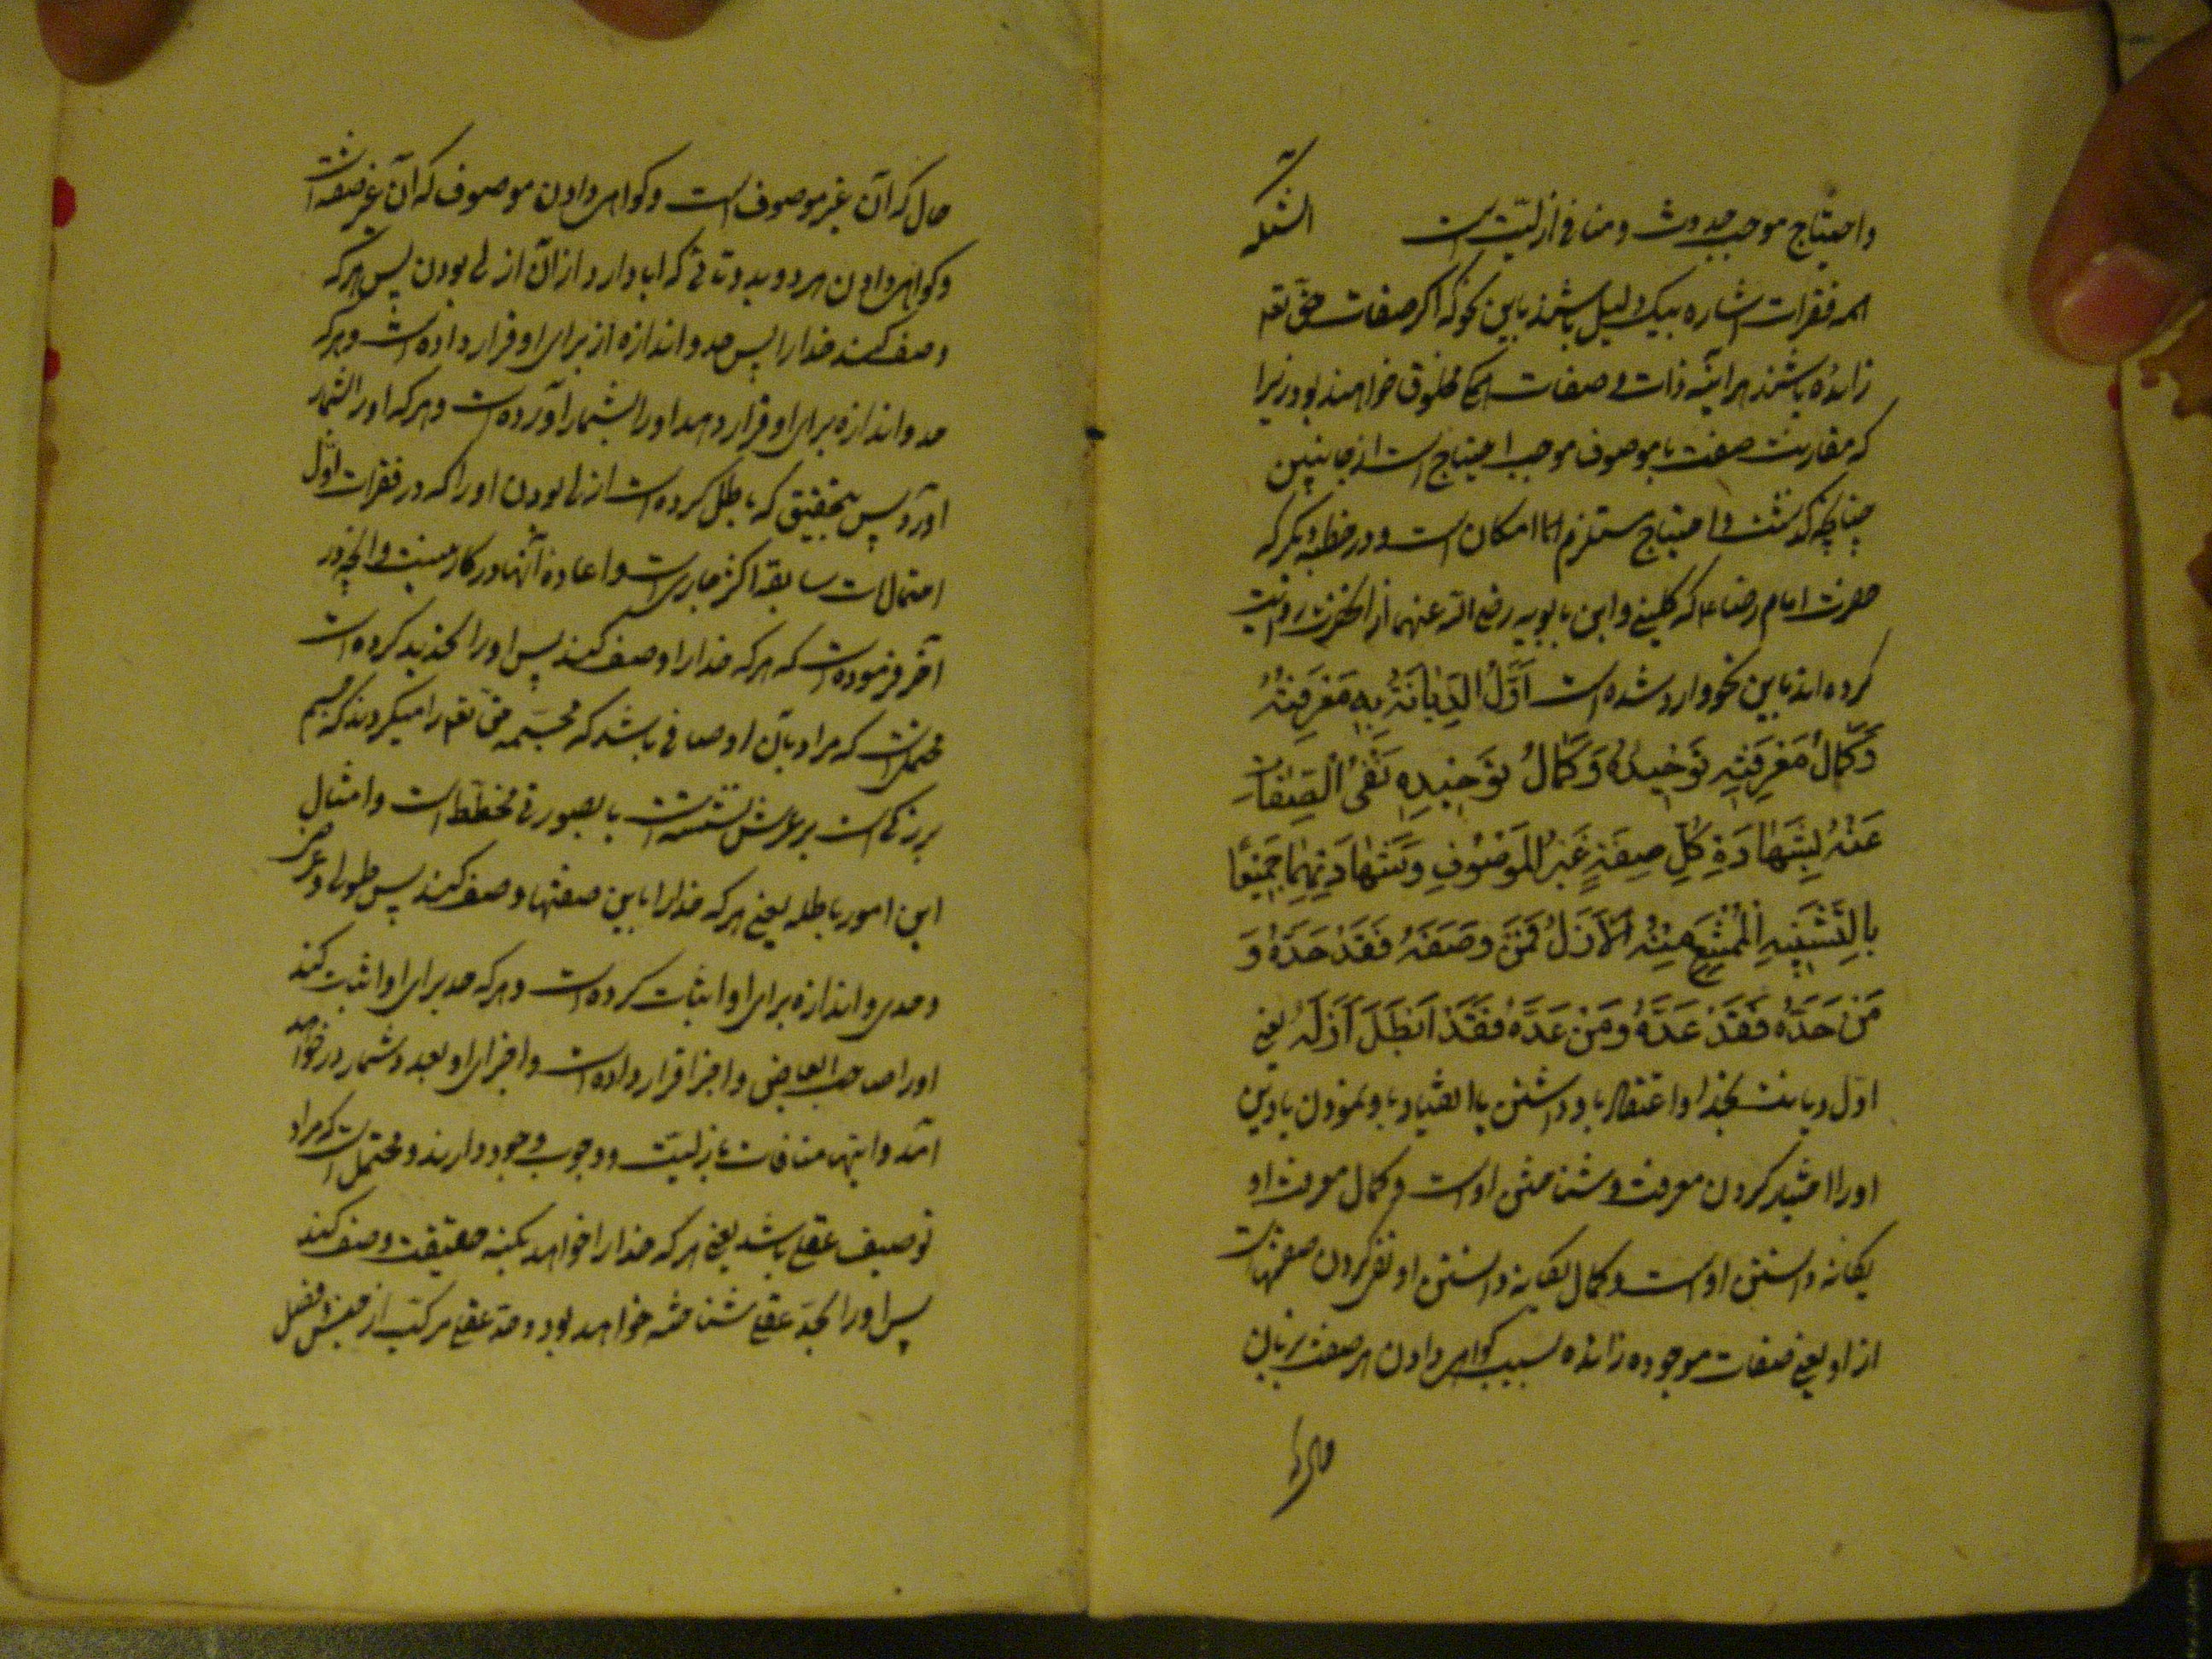 واحتیاج موجب حدوث و منافی ازلیّت است آنکه
همه فقرات اشاره بیک دلیل باشند باین نحو که اکر صفات حق تعه
زائده باشند هر آینه ذات و صفات همکی مخلوق خواهند بود زیرا
که مقارنت صفت با موصوف موجب احتیاج است از جانبین
چنانچه کذشت و احتیاج مستلزم امکان است و در خطبهٔ دیکر که
حضرت امام رضا ع که کلینی و ابن بابویه رضی الله عنهما از آنحضرت روایت
کرده اند باین نحو وارد شده است اَوَّلُ الدِّیانَةِ بِهِ مَعْرِفَتُهُ
وَکَمالُ مَعْرِفَتِهِ تَوْحیدُهُ وَکَمالُ تَوْحیدِهِ نَفْیُ الصِّفاتِ
عَنْهُ بِشَهادَةِ کُلِّ صِفَةٍ غَیْرُ الْمَوْصُوفِ وَشَهادَتِهِما جَمیعًا
بِالتَّثْنِیَهِ الْمُمْتَنِعِ مِنْهُ الْاَزَلُ فَمَنْ وَصَفَهُ فَقَدْ حَدَّهُ وَ
مَنْ حَدَّهُ فَقَدْ عَدَّهُ وَمَنْ عَدَّهُ فَقَدْ اَبْطَلَ اَزَلَهُ یعنی
اوّل دیانت بخدا و اعتقاد باو داشتن یا انقیاد باو نمودن یا دین
او را اختیار کردن معرفت و شناختن اوست و کمال معرفت او
یکانه دانستن اوست و کمال یکانه دانستن او نفی کردن صفتهاست
از او یعنی صفات موجوده زائده بسبب کواهی دادن هر صفت بزبان
حال که آن غیر موصوف است و کواهی دادن موصوف که آن غیر صفت است
و کواهی دادن هر دو بدوتائی که ابا دارد از آن ازلی بودن پس هر که
وصف کند خدا را پس حد و اندازه از برای او قرار داده است و هر که
حد و اندازه برای او قرار دهد او را بشمار آورده است و هر که او را بشمار
آورد پس بتحقیق که باطل کرده است ازلی بودن او را که در فقرات اوّل
احتمالات سابقه اکثر جاری است و اعاده آنها در کار نیست و آنچه در
آخر فرموده است که هر که خدا را وصف کند پس او را تحدید کرده است
محتمل است که مراد بآن اوصافی باشد که مجسّمه حق تعه را میکردند که جسم
بزرکی است بر عرش نشسته است یا بصورتی مخطّط است و امثال
این امور باطله یعنی هر که خدا را باین صفتها وصف کند پس طولی و عرضی
و حدی و اندازه برای او اثبات کرده است و هر که حد برای او اثبات کند
او را صاحب ابعاض و اجزا قرار داده است و اجزای او بعد و شمار در خواهد
آمد و اینها منافات با ازلیّت و وجوب وجود دارند و محتمل است که مراد
توصیف عقلی باشد یعنی هر که خدا را خواهد بکنه حقیقت وصف کند
پس او را بحدّ عقلی شناخته خواهد بود و حدّ عقلی مرکّب از جنس و فصل